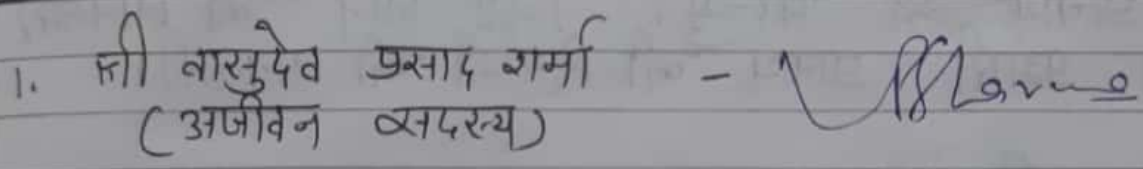 1. श्री वासुदेव प्रसाद शर्मा -
(अजीवन सदस्य)